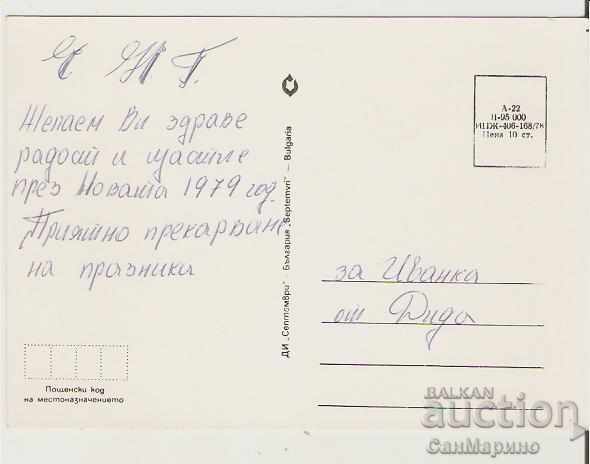 Ч Н Г.
Желаем Ви здраве
радост и щастие
през Новата 1979 год.
Приятно прекарване
на празника
ДИ „Септември" - България „Septemvri" — Bulgaria
А-22
П-95 000
ИПЖ-406-168/78
Цена 10 ст.
за Иванка
от Дида
Пощенски код
на местоназначението
BALKAN
auction
СанМарино